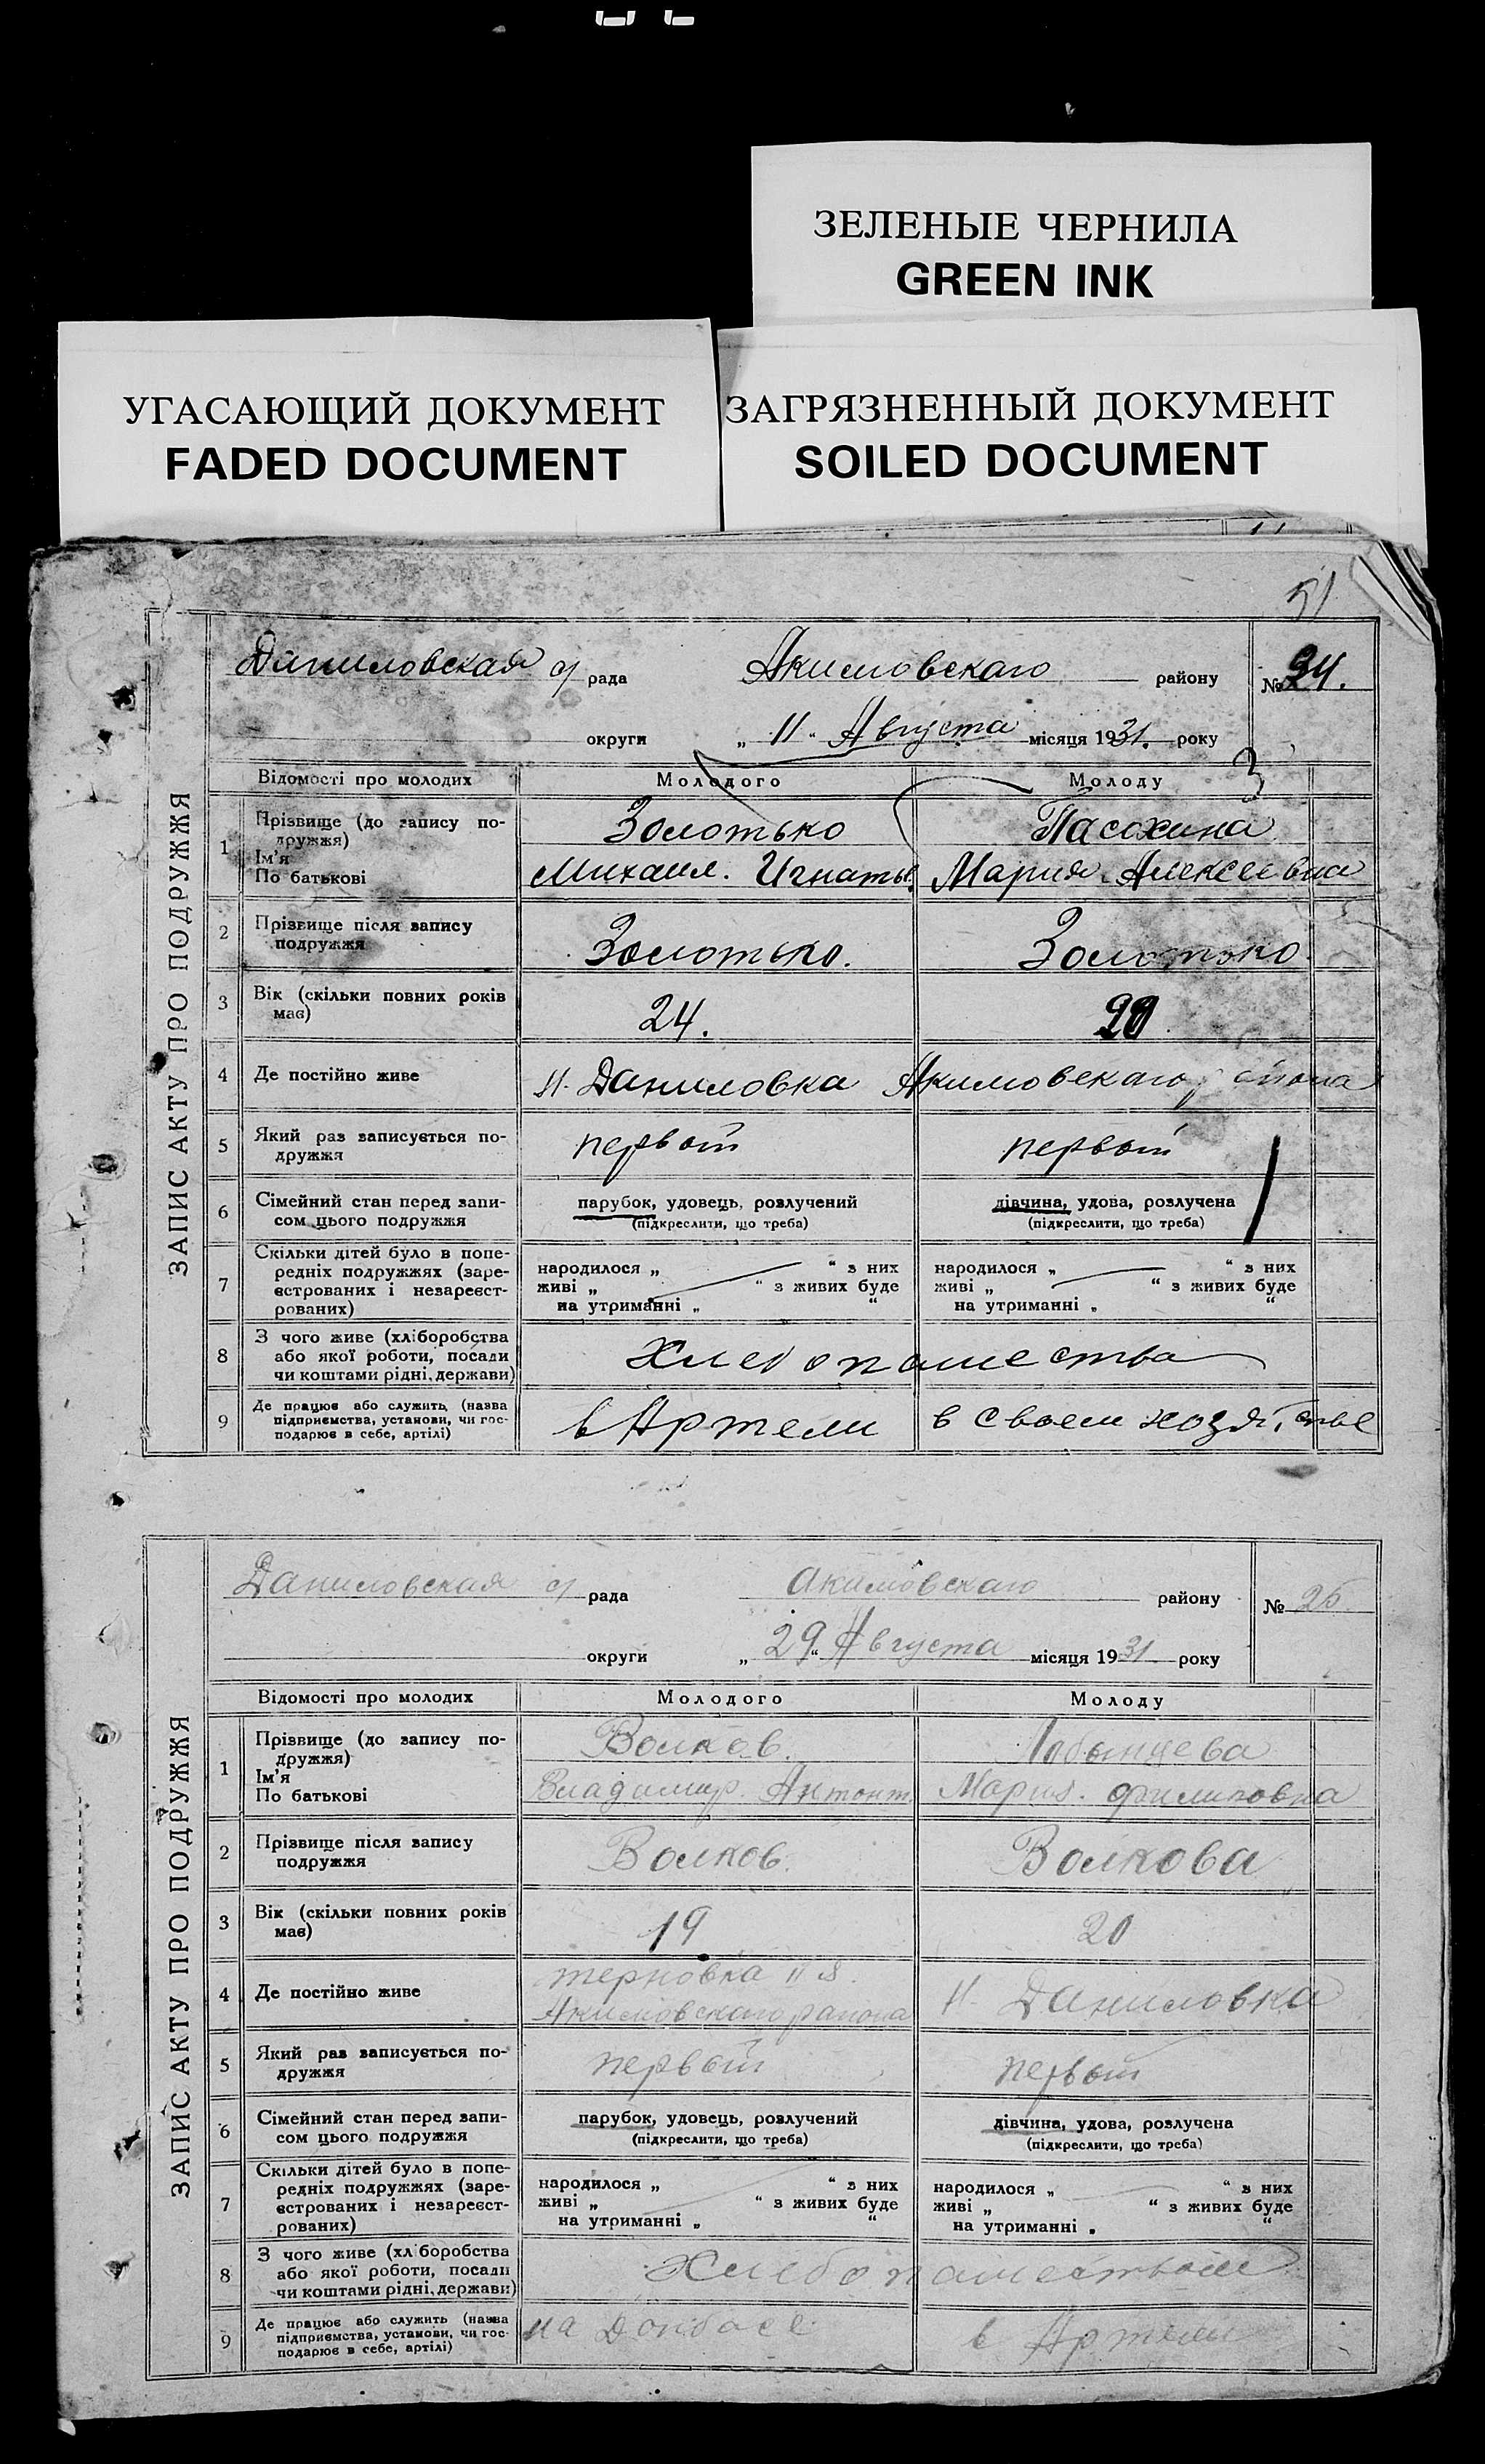 ЗЕЛЕНЫЕ ЧЕРНИЛА
GREEN INK
УГАСАЮЩИЙ ДОКУМЕНТ
FADED DOCUMENT
ЗАГРЯЗНЕННЫЙ ДОКУМЕНТ
SOILED DOCUMENT
51
ЗАПИС АКТУ ПРО ПОДРУЖЖЯ
Даниловская с/ рада Акимовскаго району № 24.
округи „ 11 “ Августа місяця 1931. року
Відомості про молодих Молодого Молоду
3
1 Прізвище (до запису по-
дружжя)
Ім'я
По батькові
Золотько Пасохина
Михаил. Игнатьев. Мария Алексеевна
2 Прізвище після запису
подружжя
Золотько. Золотько
3 Вік (скільки повних років
має)
24. 20.
4 Де постійно живе Н. Даниловка Акимовскаго района
5 Який раз записується по-
дружжя
первый первый
6 Сімейний стан перед запи-
сом цього подружжя
парубок, удовець, розлучений
(підкреслити, що треба)
дівчина, удова, розлучена
(підкреслити, що треба)
7 Скільки дітей було в попе-
редніх подружжях (заре-
єстрованих і незареєст-
рованих)
народилося „ “ з них
живі „ “ з живих буде
на утриманні „ “
народилося „ “ з них
живі „ “ з живих буде
на утриманні „ “
8 З чого живе (хліборобства
або якої роботи, посади
чи коштами рідні, держави)
Хлебопашества
9 Де працює або служить (назва
підприємства, установи, чи гос-
подарює в себе, артілі)
в Артели в своем хозяйстве
ЗАПИС АКТУ ПРО ПОДРУЖЖЯ
Даниловская с/ рада Акимовскаго району № 25.
округи „ 29 “ Августа місяця 1931. року
Відомості про молодих Молодого Молоду
1 Прізвище (до запису по-
дружжя)
Ім'я
По батькові
Волков. Лобынцева
Владимир. Антон. Мария. Филиповна
2 Прізвище після запису
подружжя
Волков. Волкова
3 Вік (скільки повних років
має)
19 20
4 Де постійно живе
Терновка
Акимовскаго района
Н. Даниловка
5 Який раз записується по-
дружжя
первый первый
6 Сімейний стан перед запи-
сом цього подружжя
парубок, удовець, розлучений
(підкреслити, що треба)
дівчина, удова, розлучена
(підкреслити, що треба)
7 Скільки дітей було в попе-
редніх подружжях (заре-
єстрованих і незареєст-
рованих)
народилося „ “ з них
живі „ “ з живих буде
на утриманні „ “
народилося „ “ з них
живі „ “ з живих буде
на утриманні „ “
8 З чого живе (хліборобства
або якої роботи, посади
чи коштами рідні, держави)
Хлебопашеством
9 Де працює або служить (назва
підприємства, установи, чи гос-
подарює в себе, артілі)
на Донбасе в Артели